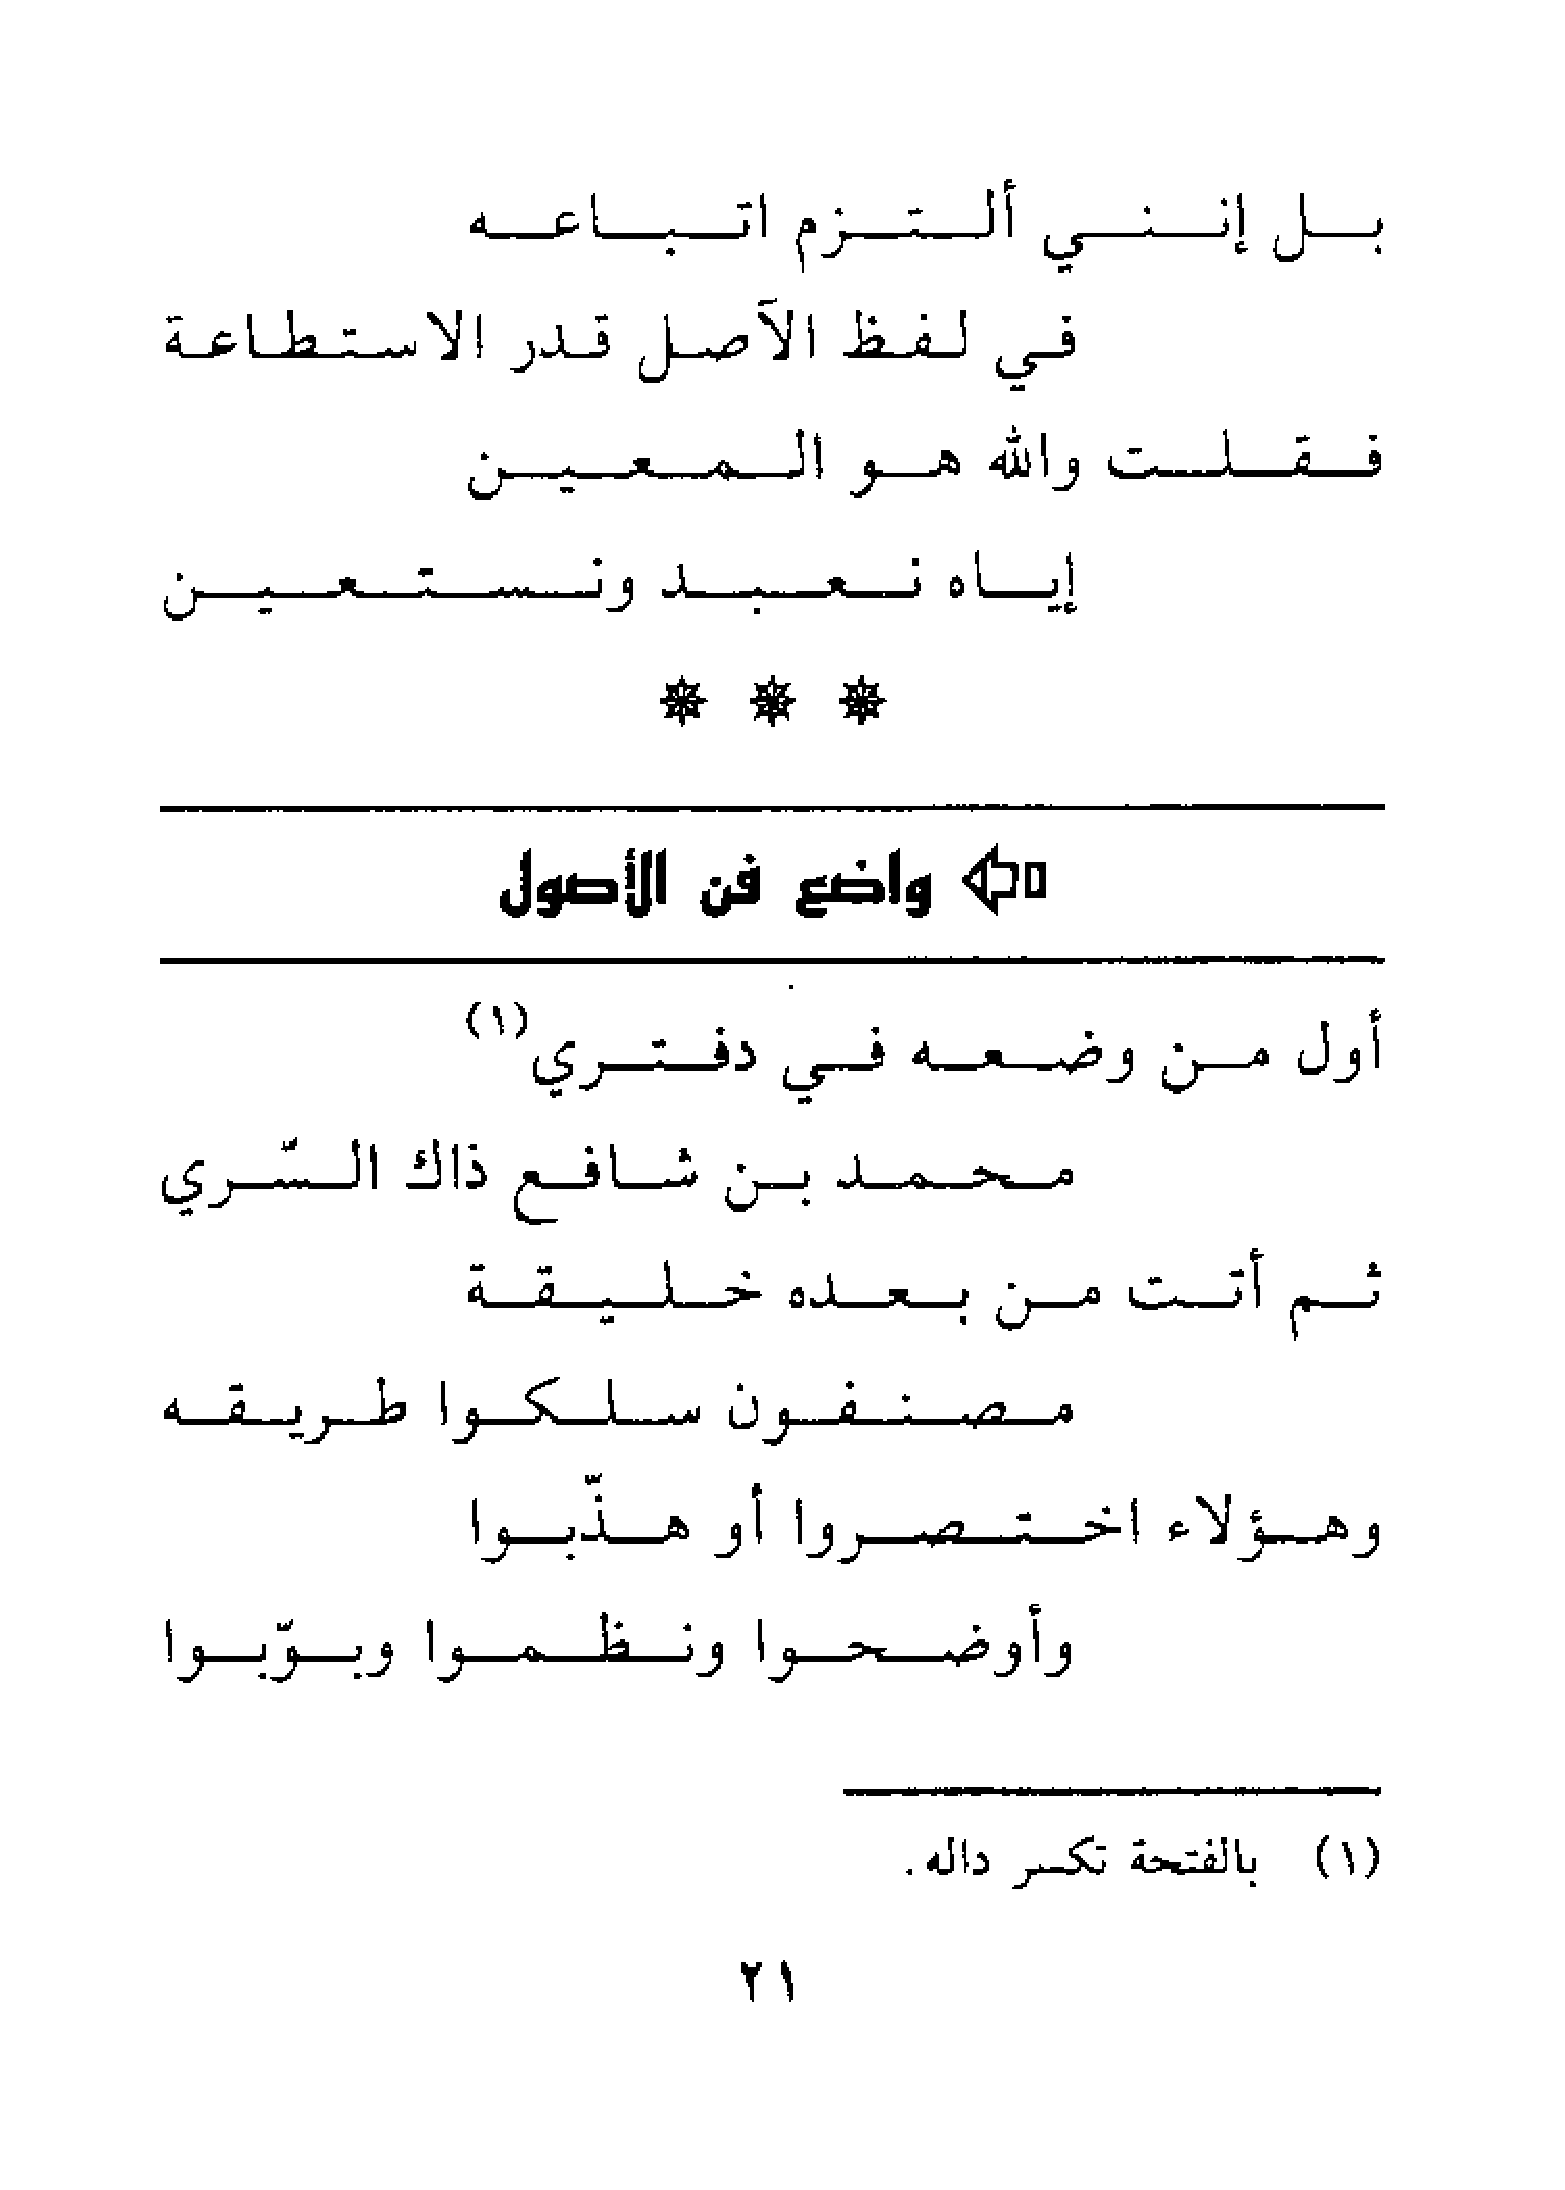 بل إنني ألتزم اتباعه
في لفظ الآصل قدر الاستطاعة
فقلت والله هو المعين
إياه نعبد ونستعين
واضع فن الأصول
أول من وضعه في دفتري(١)
محمد بن شافع ذاك السّري
ثم أتت من بعده خليقة
مصنفون سلكوا طريقه
وهؤلاء اختصروا أو هذّبوا
وأوضحوا ونظموا وبوّبوا
(١) بالفتحة تكسر داله.
٢١